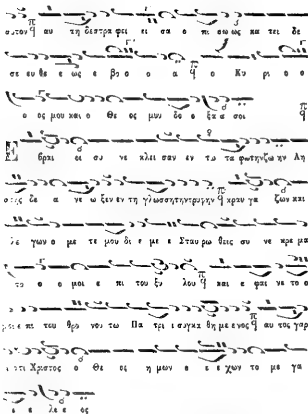 αυτον αυ τη δε στρα φει ει σα ο πι σω ως κα τει δε
σε ευ θε ε ως ε βο ο ο α Ο Κυ ρι ο ο
ο ος μου και ο Θε ος μου δο ο ξα α σοι
βραι οι συ νε κλει σαν εν τω τα φω την ζω ην Λη
στης δε α νε ω ξεν εν τη γλωσση την τρυφην κραυ γα ζων και
λε γων ο με τε μου δι ε με ε Σταυ ρω θεις συ νε κρε μα
το ο ο μοι ε πι του ξυ λου και ε φαι νε το ο
μοι ε πι του θρο νου τω Πα τρι ι συγκα θη με ε νος αυ τος γαρ
Χριστος ο Θε ος η μων ο ε ε χων το με γα
ε λε ε ος